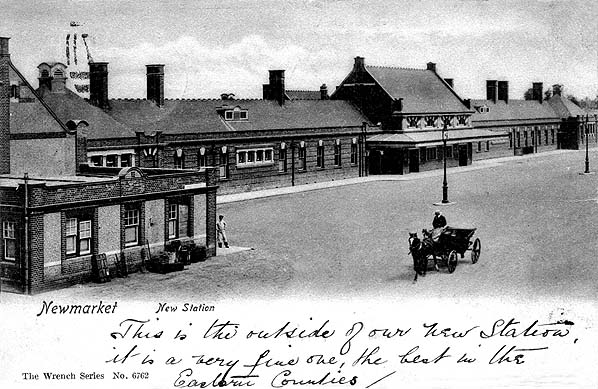 Newmarket New Station
This is the outside of our New Station,
it is a very fine one, the best in the
The Wrench Series No. 6762
Eastern Counties /